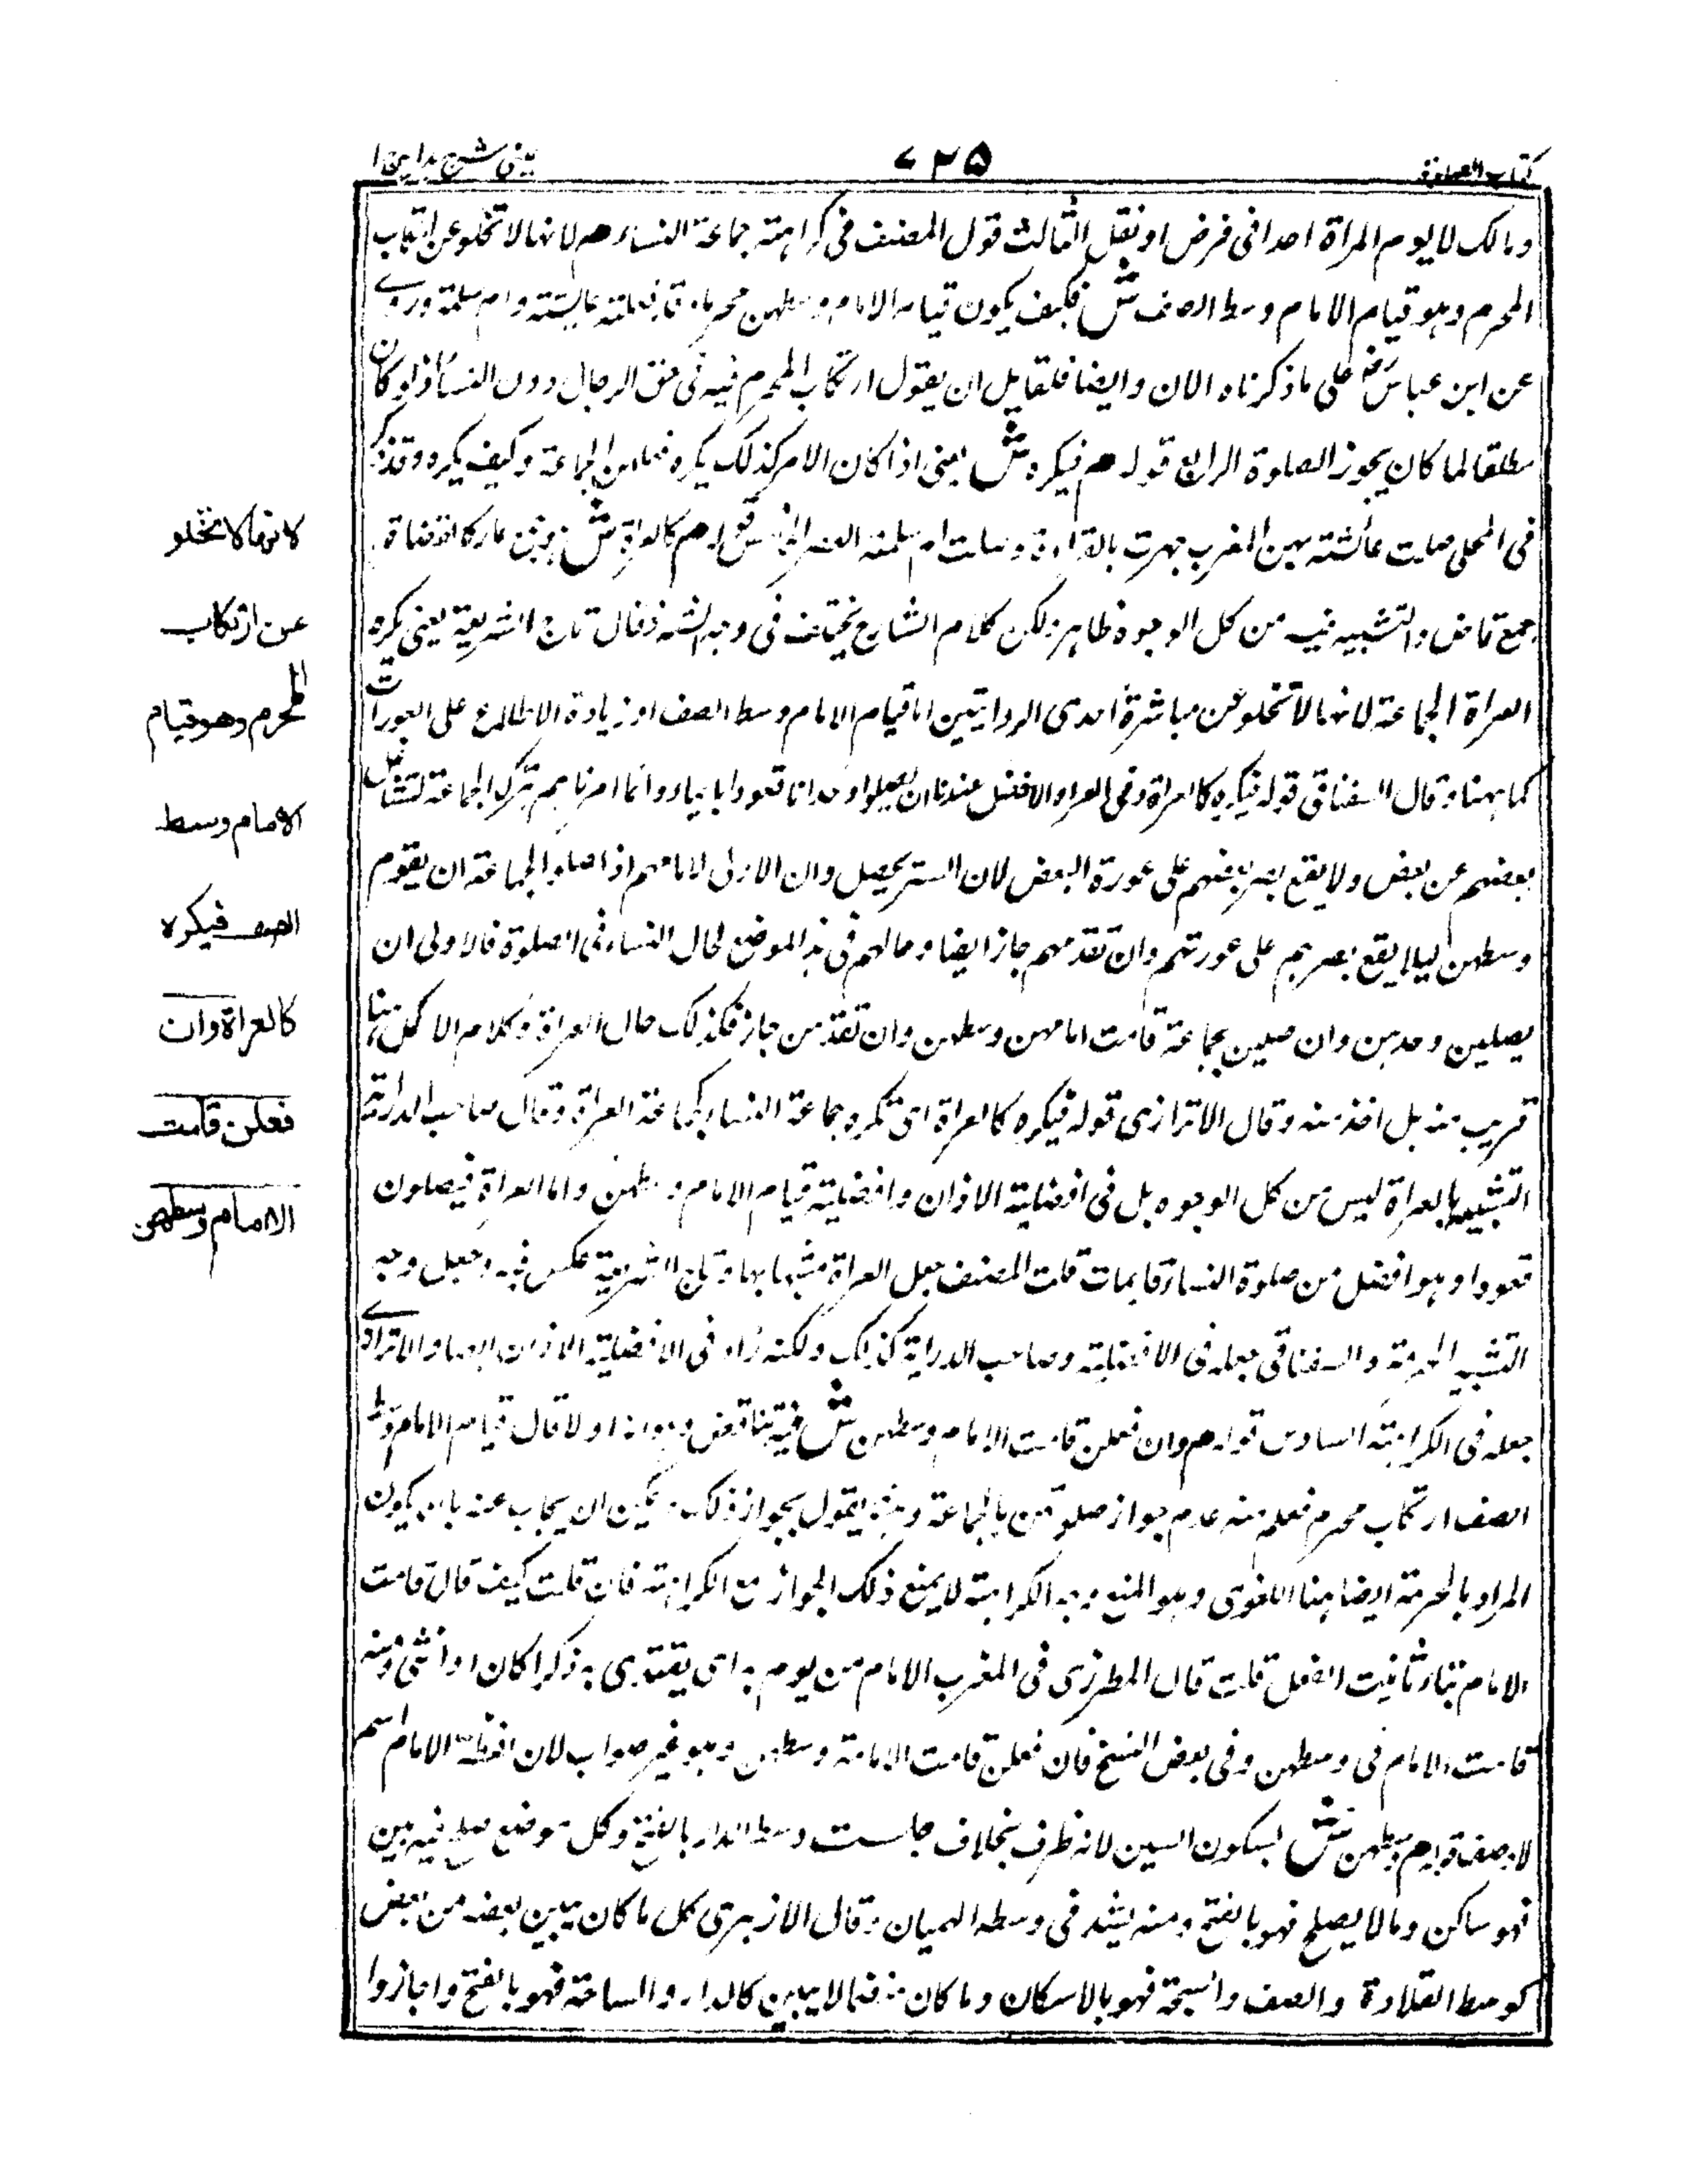 كتاب الصلوة
٧٢٥
عينى شرح هداية ج ١
ومالك لا يوم المراة احدا فى فرض او نفل الثالث قول المصنف فى كراهته جماعة النساء هم لانها لا تخلو عن ارتكاب
المحرم وهو قيام الامام وسط الصف ش فكيف يكون قيام الامام وسطهن محرما وقد فعلته عايشته وام سلمة وروے
عن ابن عباس رض على ما ذكرناه الان وايضا فلقايل ان يقول ارتكاب المحرم فيه فى حق الرجال دون النساء اذ لو كان
مطلقا لما كان يجوز الصلوة الرابع قوله هم فيكره ش يعنى اذا كان الامر كذلك يكره فعلهن الجماعة وكيف يكره وقد ذكر
فى المحلى صلت عائشته بهن المغرب جهرت بالقراءة وصلت ام سلمة العصر الخامس قوله هم كالعراة ش جمع عار كالقضاة
جمع قاض والتشبيه فيه من كل الوجوه ظاهر لكن كلام الشارح يختلف فى وجه الشبه فقال تاج الشريعة يعنى يكره
العراة الجماعة لانها لا تخلو عن مباشرة احدى الروايتين اما قيام الامام وسط الصف او زيادة الاطلاع على العورات
كما ههنا وقال السغناقى قوله فيكره كالعراة وفى العراه الافضل عندنا ان يصلوا وحدانا قعودا بايماء وانما امرناهم بترك الجماعة
بعضهم عن بعض ولا يقع بصر بعضهم على عورة البعض لان الستر يحصل وان الاولى لامامهم اذا صلوا الجماعته ان يقوم
وسطهن ليلا يقع بصرهم على عورتهم وان تقدمهم جاز ايضا وحالهم فى هذا الموضع لحال النساء فى الصلوة فالاولى ان
يصلين وحدهن وان صلين بجماعة قامت امامهن وسطهن وان تقدمتهن جاز فكذلك حال العراة وكلام الاكمل هنا
قريب منه بل اخذ منه وقال الاترازى قوله فيكره كالعراة اى تكره جماعة النساء كجماعة العراة وقال صاحب الدراية
التشبيه بالعراة ليس من كل الوجوه بل فى افضلية الاذان وافضلية قيام الامام وسطهن واما العراة فيصلون
قعودا وهو افضل من صلوة النساء قايمات قلت المصنف جعل العراة مشبها بها وتاج الشريعة عكس فيه وجعل وجه
التشبيه الحرمة والسغناقى جعله فى الافضلية وصاحب الدراية كذلك ولكنه زاد فى الافضلية الاذان ايضا والاترازے
جعله فى الكراهته السادس قوله هم وان فعلن قامت الامام وسطهن ش فيه تناقض وهو انه اولا قال قيام الامام وسط
الصف ارتكاب محرم فعلم منه عدم جواز صلوتهن بالجماعة وههنا يقول بجواز ذلك ويمكن ان يجاب عنه بان يكون
المراد بالحرمة ايضا هنا اللغوى وهو المنع وجه الكراهة لا يمنع ذلك الجواز مع الكراهته فان قلت كيف قال قامت
الامام بتاء تانيث الفعل قلت قال المطرزى فى المغرب الامام من يوم به اى يقتدى به ذكرا كان او انثى ومنه
قامت الامام فى وسطهن وفى بعض النسخ فان فعلن قامت الامامة وسطهن وهو غير صواب لان لفظة الامام اسم
لا وصف قوله هم وسطهن ش بسكون السين لانه ظرف بخلاف جلست وسط الدار بالفتح وكل موضع صلح فيه بين
فهو ساكن ومالا يصلح فهو بالفتح ومنه يشد فى وسطه الهميان وقال الازهرى كل ما كان يبين بعضه من بعض
كوسط القلادة والصف والسبحة فهو بالاسكان وما كان منضما لا يبين كالدار والساحة فهو بالفتح واجازوا
لانها لا تخلو
عن ارتكاب
المحرم وهو قيام
الامام وسط
الصف فيكره
كالعراة وان
فعلن قامت
الامام وسطهن